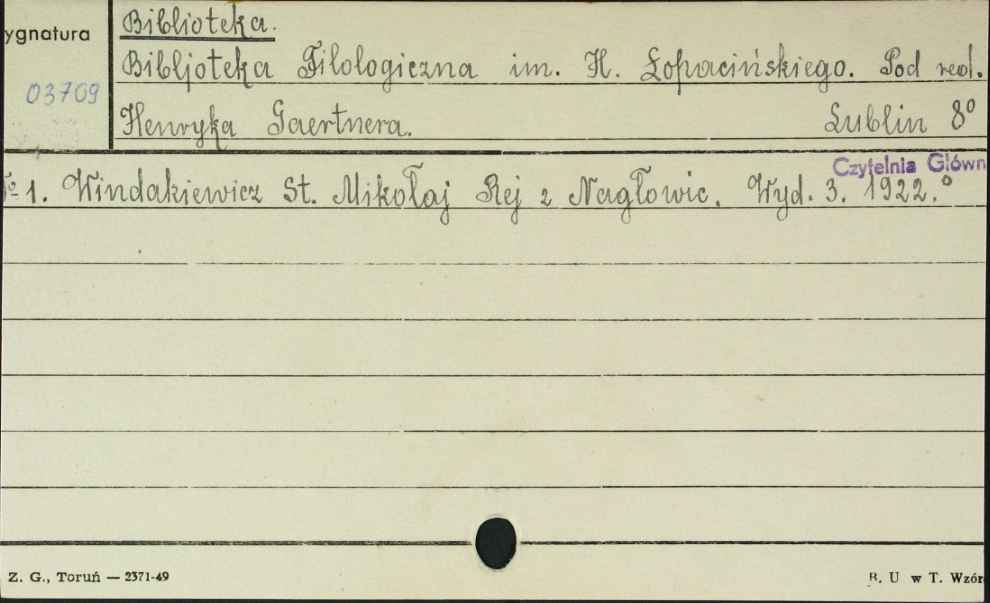 ygnatura
Biblioteka.
03709
Bibljoteka Filologiczna im. H. Łopacińskiego. Pod red.
Henryka Gaertnera. Lublin 8º
Czytelnia Główn
№ 1. Windakiewicz St. Mikołaj Rej z Nagłowic. Wyd. 3. 1922.º
Z. G., Toruń — 2371-49
B. U w T. Wzór